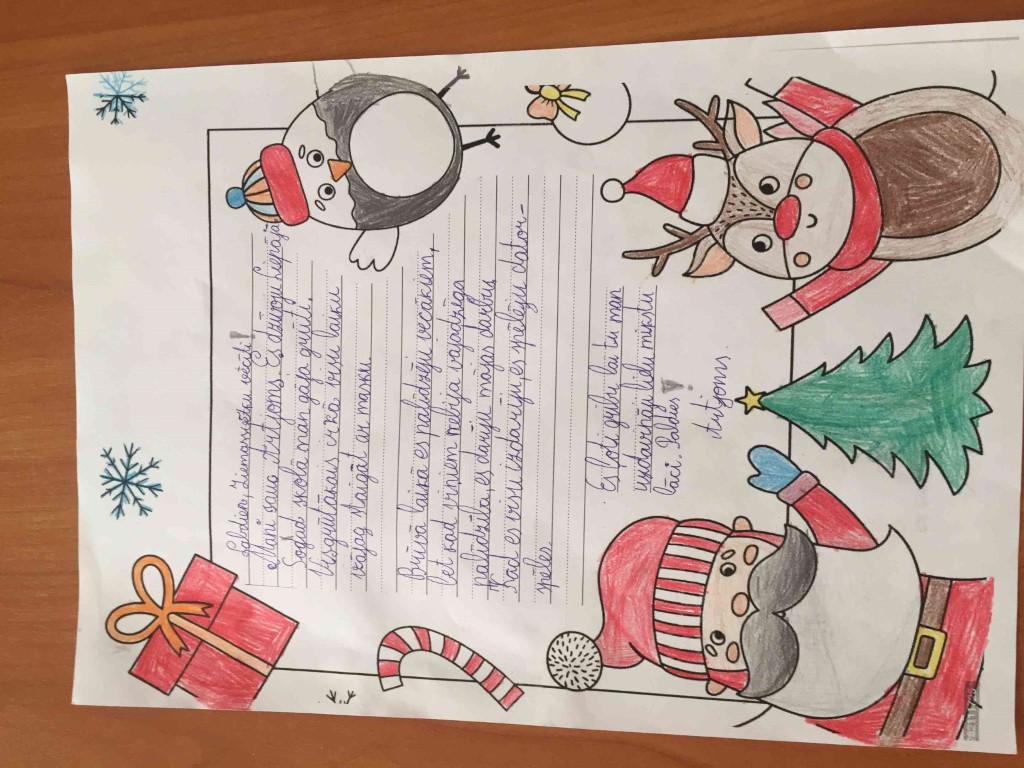 Labdien, Ziemassvētku vecīti!
Mani sauc Artjoms. Es dzīvoju Liepājā.
Šogad skolā man gāja grūti.
Visgrūtākais ir ka visu laiku
vajag staigāt ar masku.
Brīvā laikā es palīdzēju vecākiem,
bet kad viņiem nebija vajadzīga
palīdzība, es darīju mājas darbus.
Kad es visu izdarīju, es spēlēju dator-
spēles.
Es ļoti gribu lai tu man
uzdāvināji lielu minstu
lāci. Paldies!
Artjoms.